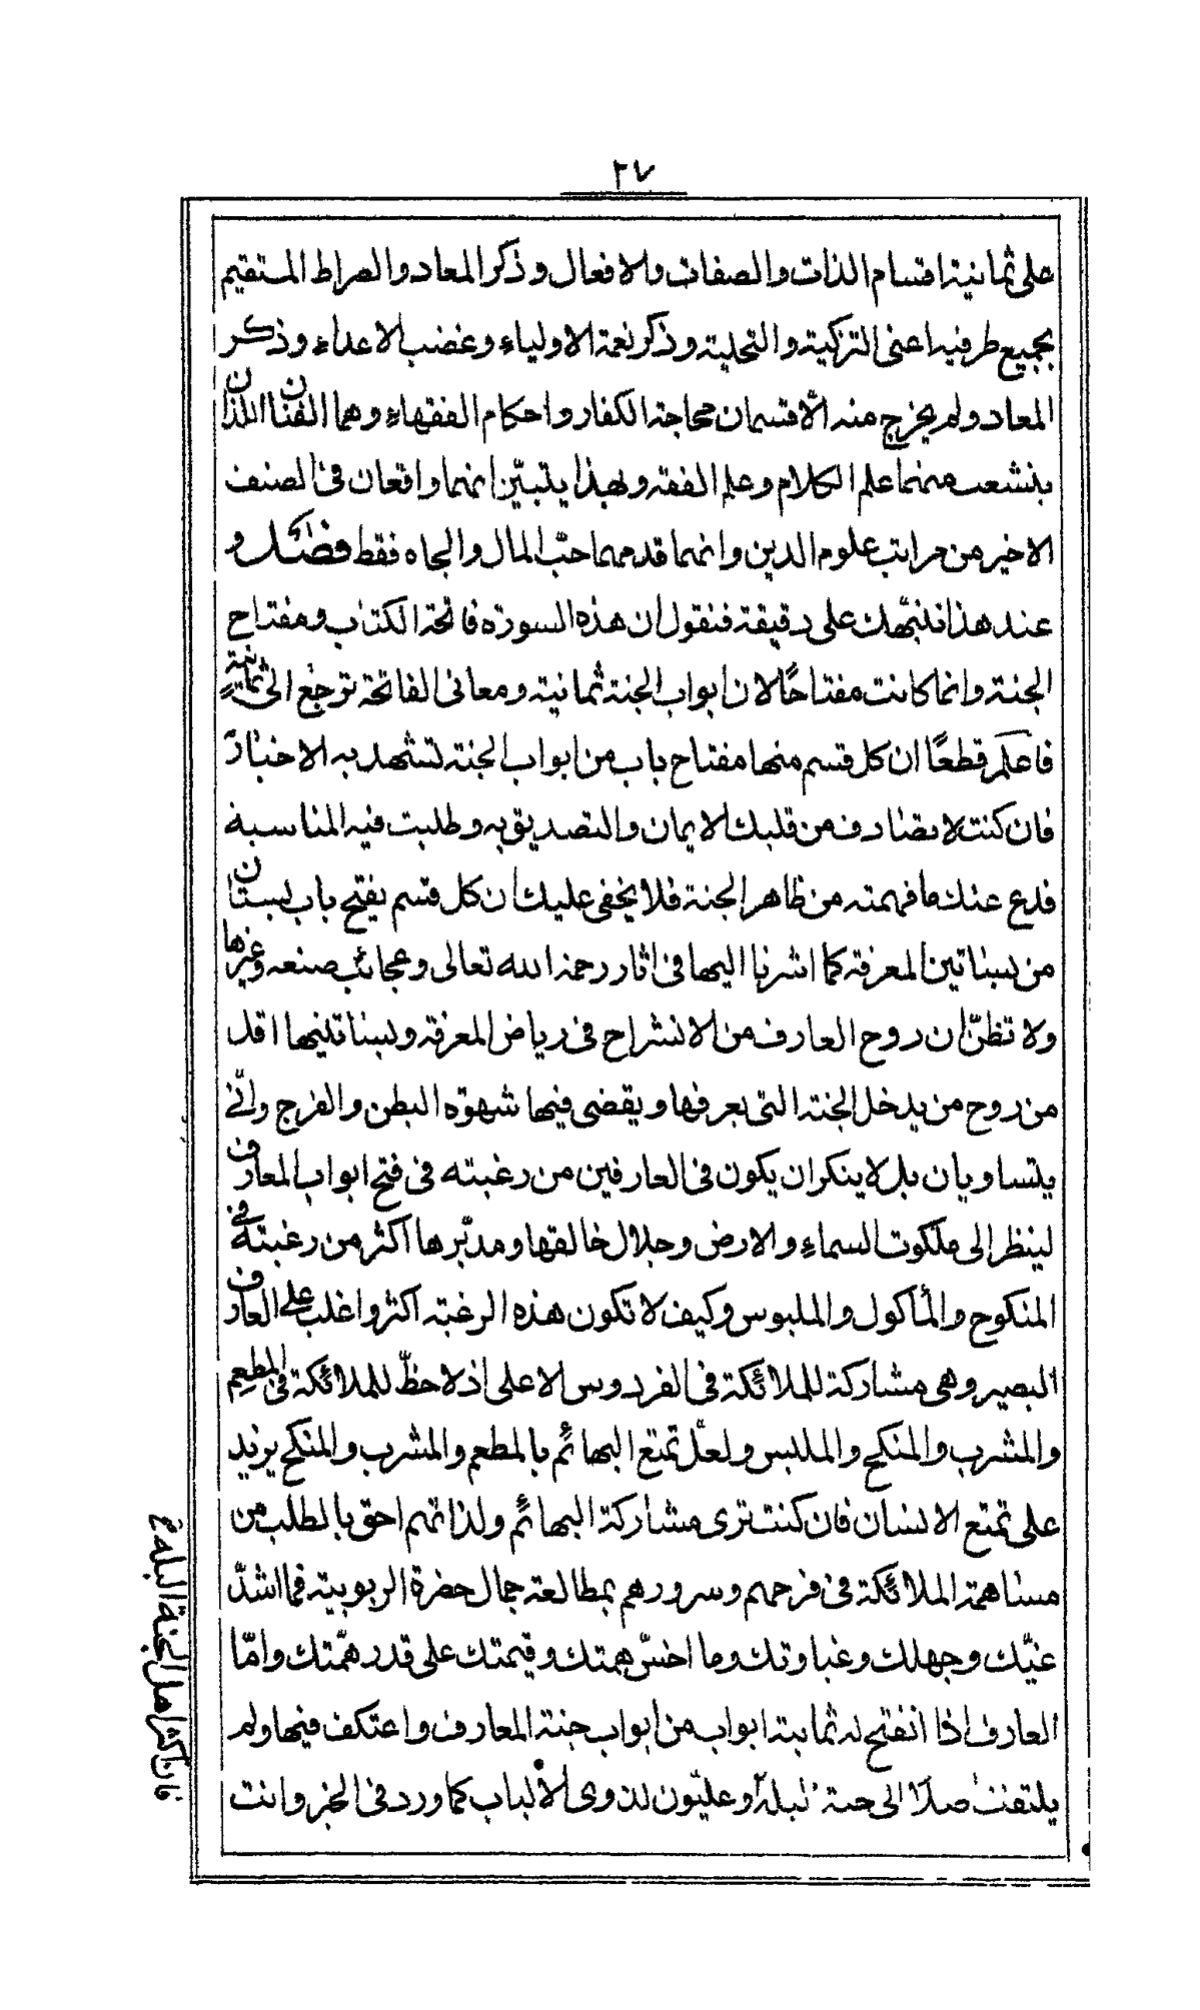 ٢٧
على ثمانية اقسام الذات والصفات والافعال وذكر المعاد والصراط المستقيم
بجميع طرفيه اعنى التزكية والتحلية وذكر نعمة الاولياء وغضب الاعداء وذكر
المعاد ولم يخرج منه الّا قسمان محاجة الكفار واحكام الفقهاء وهما الفنان اللذان
ينشعب منهما علم الكلام وعلم الفقه وبهذا يتبيّن انهما واقعان فى الصنف
الاخير من مراتب علوم الدين وانما قدمهما حبّ المال والجاه فقط فصل و
عند هذا ننبّهك على دقيقة فنقول ان هذه السورة فاتحة الكتاب ومفتاح
الجنة وانما كانت مفتاحًا لان ابواب الجنة ثمانية ومعانى الفاتحة ترجع الى ثمانية
فاعلم قطعًا ان كل قسم منها مفتاح باب من ابواب الجنة تشهد به الاخبار
فان كنت لا تصادف من قلبك الايمان والتصديق به وطلبت فيه المناسبة
فدع عنك ما فهمته من ظاهر الجنة فلا يخفى عليك ان كل قسم يفتح باب بستان
من بساتين المعرفة كما اشرنا اليها فى اثار رحمة الله تعالى وعجائب صنعه وغيرها
ولا تظنّ ان روح العارف من الانشراح فى رياض المعرفة وبساتينها اقل
من روح من يدخل الجنة التى يعرفها ويقضى فيها شهوة البطن والفرج وانّى
يتساويان بل لا ينكر ان يكون فى العارفين من رغبته فى فتح ابواب المعارف
لينظر الى ملكوت السماء والارض وجلال خالقها ومدبّرها اكثر من رغبته فى
المنكوح والمأكول والملبوس وكيف لا تكون هذه الرغبة اكثر واغلب على العارف
البصير وهى مشاركة للملائكة فى الفردوس الاعلى اذ لا حظّ للملائكة فى المطعم
والمشرب والمنكح والملبس ولعلّ تمتع البهائم بالمطعم والمشرب والمنكح يزيد
على تمتع الانسان فان كنت ترى مشاركة البهائم ولذاتهم احق بالطلب من
مساهمة الملائكة فى فرحهم وسرورهم بمطالعة جمال حضرة الربوبية فما اشدّ
غيّك وجهلك وغباوتك وما اخسّ همتك وقيمتك على قدر همّتك وامّا
العارف اذا انفتح له ثمانية ابواب من ابواب جنة المعارف واعتكف فيها ولم
يلتفت اصلًا الى جنة البله وعليّون لذوى الألباب كما ورد فى الخبر وانت
فان اكثر اهل الجنة البله